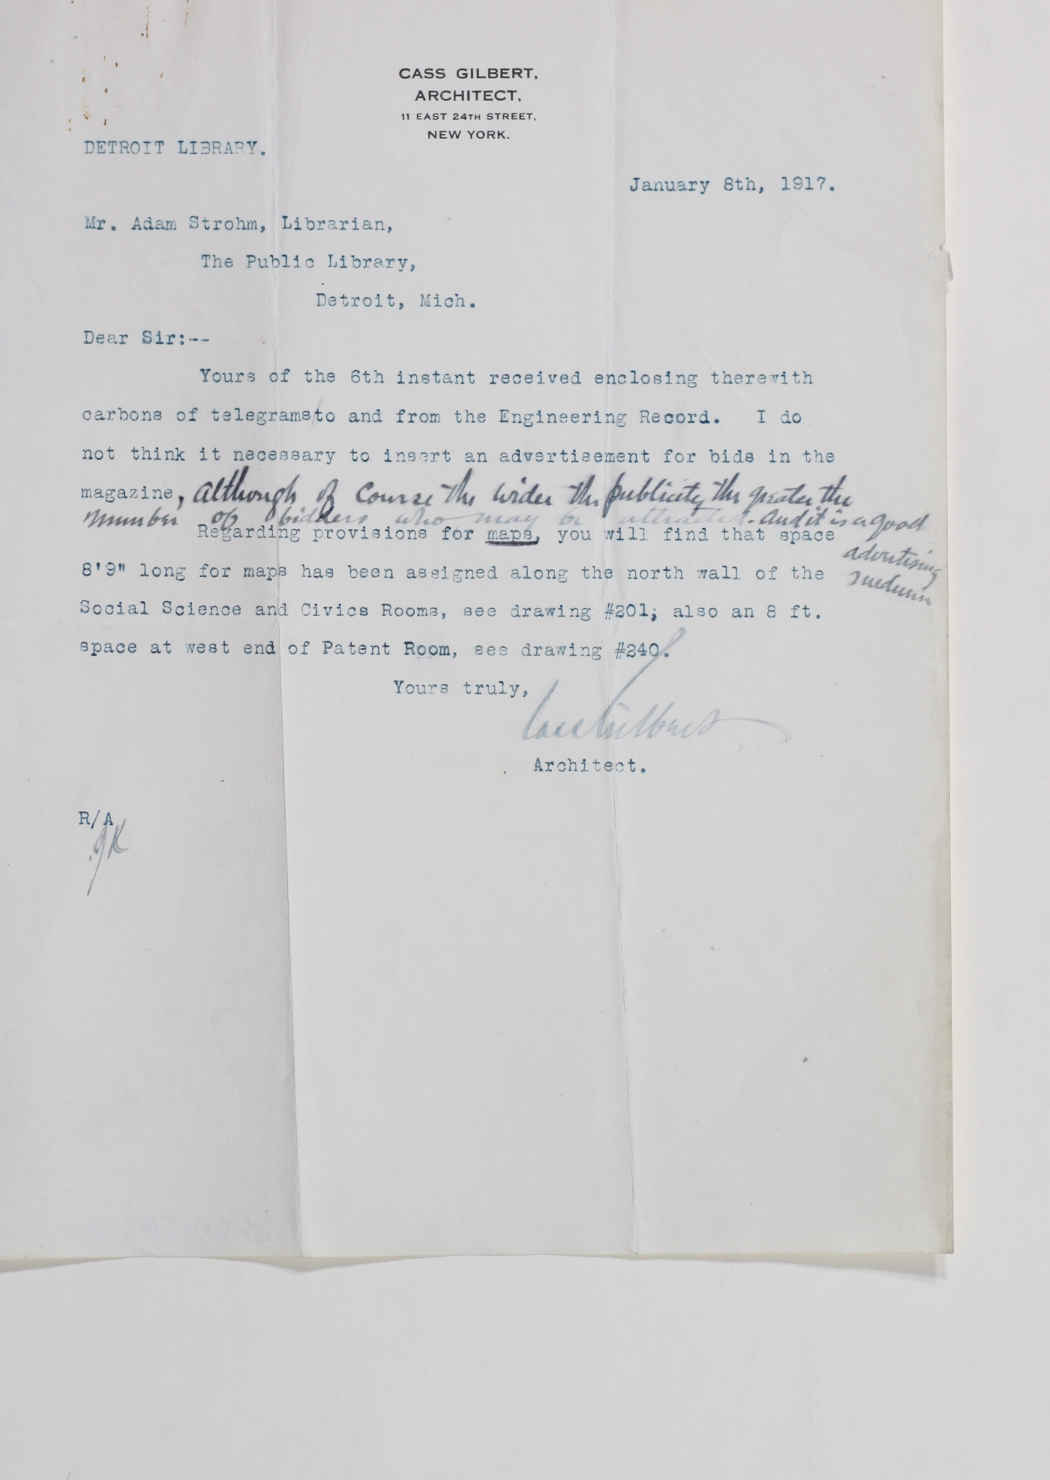 CASS GILBERT,
ARCHITECT,
11 EAST 24TH STREET,
NEW YORK.
DETROIT LIBRARY.
January 8th, 1917.
Mr. Adam Strohm, Librarian,
The Public Library,
Detroit, Mich.
Dear Sir:--
Yours of the 6th instant received enclosing therewith
carbons of telegramsto and from the Engineering Record. I do
not think it necessary to insert an advertisement for bids in the
magazine, although of course the wider the publicity the greater the
number of bidders who may be attracted. and it is a good
advertising
medium
Regarding provisions for maps, you will find that space
8'9" long for maps has been assigned along the north wall of the
Social Science and Civics Rooms, see drawing #201; also an 8 ft.
space at west end of Patent Room, see drawing #240.
Yours truly,
Cass Gilbert
Architect.
R/A